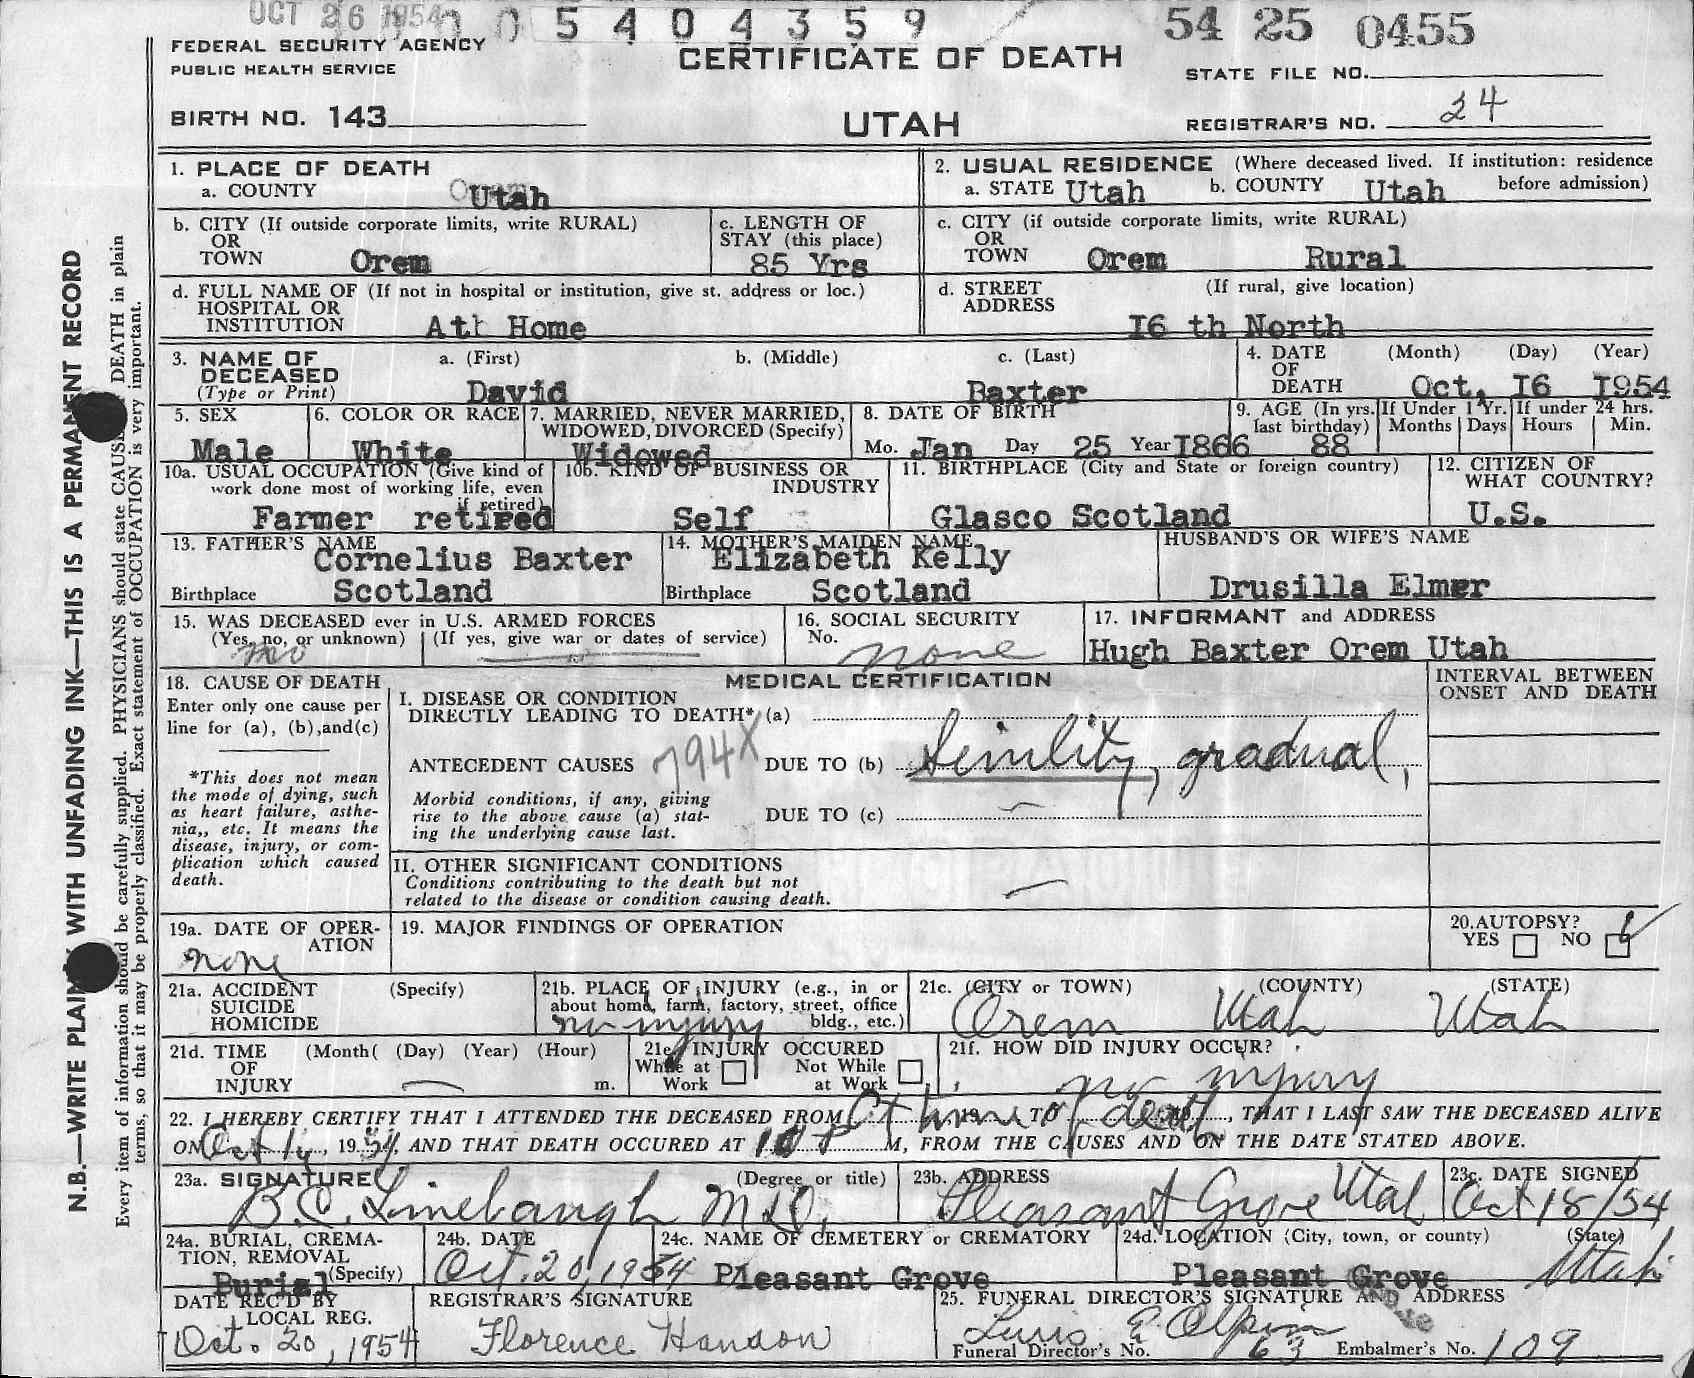 OCT 26 1954
0 5 4 0 4 3 5 9
54 25 0455
FEDERAL SECURITY AGENCY
PUBLIC HEALTH SERVICE
CERTIFICATE OF DEATH
STATE FILE NO.
BIRTH NO. 143
UTAH
REGISTRAR'S NO. 24
1. PLACE OF DEATH
a. COUNTY Utah
2. USUAL RESIDENCE (Where deceased lived. If institution: residence before admission)
a. STATE Utah b. COUNTY Utah
b. CITY (If outside corporate limits, write RURAL)
OR
TOWN Orem
c. LENGTH OF
STAY (this place)
85 Yrs
c. CITY (if outside corporate limits, write RURAL)
OR
TOWN Orem Rural
d. FULL NAME OF (If not in hospital or institution, give st. address or loc.)
HOSPITAL OR
INSTITUTION At Home
d. STREET (If rural, give location)
ADDRESS
I6 th North
3. NAME OF a. (First) b. (Middle) c. (Last)
DECEASED
(Type or Print) David Baxter
4. DATE (Month) (Day) (Year)
OF
DEATH Oct, I6 I954
5. SEX
Male
6. COLOR OR RACE
White
7. MARRIED, NEVER MARRIED,
WIDOWED, DIVORCED (Specify)
Widowed
8. DATE OF BIRTH
Mo. Jan Day 25 Year I866
9. AGE (In yrs. last birthday)
88
If Under 1 Yr.
Months Days
If under 24 hrs.
Hours Min.
10a. USUAL OCCUPATION (Give kind of
work done most of working life, even
if retired)
Farmer retired
10b. KIND OF BUSINESS OR
INDUSTRY
Self
11. BIRTHPLACE (City and State or foreign country)
Glasco Scotland
12. CITIZEN OF
WHAT COUNTRY?
U.S.
13. FATHER'S NAME
Cornelius Baxter
Birthplace Scotland
14. MOTHER'S MAIDEN NAME
Elizabeth Kelly
Birthplace Scotland
HUSBAND'S OR WIFE'S NAME
Drusilla Elmer
15. WAS DECEASED ever in U.S. ARMED FORCES
(Yes, no, or unknown) (If yes, give war or dates of service)
no
16. SOCIAL SECURITY
No. none
17. INFORMANT and ADDRESS
Hugh Baxter Orem Utah
18. CAUSE OF DEATH
Enter only one cause per
line for (a), (b),and(c)
*This does not mean
the mode of dying, such
as heart failure, asthe-
nia,, etc. It means the
disease, injury, or com-
plication which caused
death.
MEDICAL CERTIFICATION
INTERVAL BETWEEN
ONSET AND DEATH
I. DISEASE OR CONDITION
DIRECTLY LEADING TO DEATH* (a)
ANTECEDENT CAUSES 794X DUE TO (b) Senility, gradual,
Morbid conditions, if any, giving
rise to the above cause (a) stat-
ing the underlying cause last.
DUE TO (c)
II. OTHER SIGNIFICANT CONDITIONS
Conditions contributing to the death but not
related to the disease or condition causing death.
19a. DATE OF OPER-
ATION
none
19. MAJOR FINDINGS OF OPERATION
20.AUTOPSY?
YES NO
21a. ACCIDENT (Specify)
SUICIDE
HOMICIDE
21b. PLACE OF INJURY (e.g., in or
about home, farm, factory, street, office
bldg., etc.)
no injury
21c. (CITY or TOWN) (COUNTY) (STATE)
Orem Utah Utah
21d. TIME (Month( (Day) (Year) (Hour)
OF
INJURY m.
21e. INJURY OCCURED
While at Work Not While at Work
21f. HOW DID INJURY OCCUR?
no injury
22. I HEREBY CERTIFY THAT I ATTENDED THE DECEASED FROM At time of death, 19 TO 19, THAT I LAST SAW THE DECEASED ALIVE
ON Oct 14, 1954, AND THAT DEATH OCCURED AT 10 P M, FROM THE CAUSES AND ON THE DATE STATED ABOVE.
23a. SIGNATURE (Degree or title)
B.C. Linebaugh M.D.
23b. ADDRESS
Pleasant Grove Utah
23c. DATE SIGNED
Oct 18/54
24a. BURIAL, CREMA-
TION, REMOVAL
(Specify)
Burial
24b. DATE
Oct. 20, 1954
24c. NAME OF CEMETERY or CREMATORY
Pleasant Grove
24d. LOCATION (City, town, or county) (State)
Pleasant Grove Utah
DATE REC'D BY
LOCAL REG.
Oct. 20, 1954
REGISTRAR'S SIGNATURE
Florence Handon
25. FUNERAL DIRECTOR'S SIGNATURE AND ADDRESS
E. Olpin
Funeral Director's No. 63 Embalmer's No. 109
N.B.—WRITE PLAINLY WITH UNFADING INK—THIS IS A PERMANENT RECORD
Every item of information should be carefully supplied. PHYSICIANS should state CAUSE DEATH in plain
terms, so that it may be properly classified. Exact statement of OCCUPATION is very important.